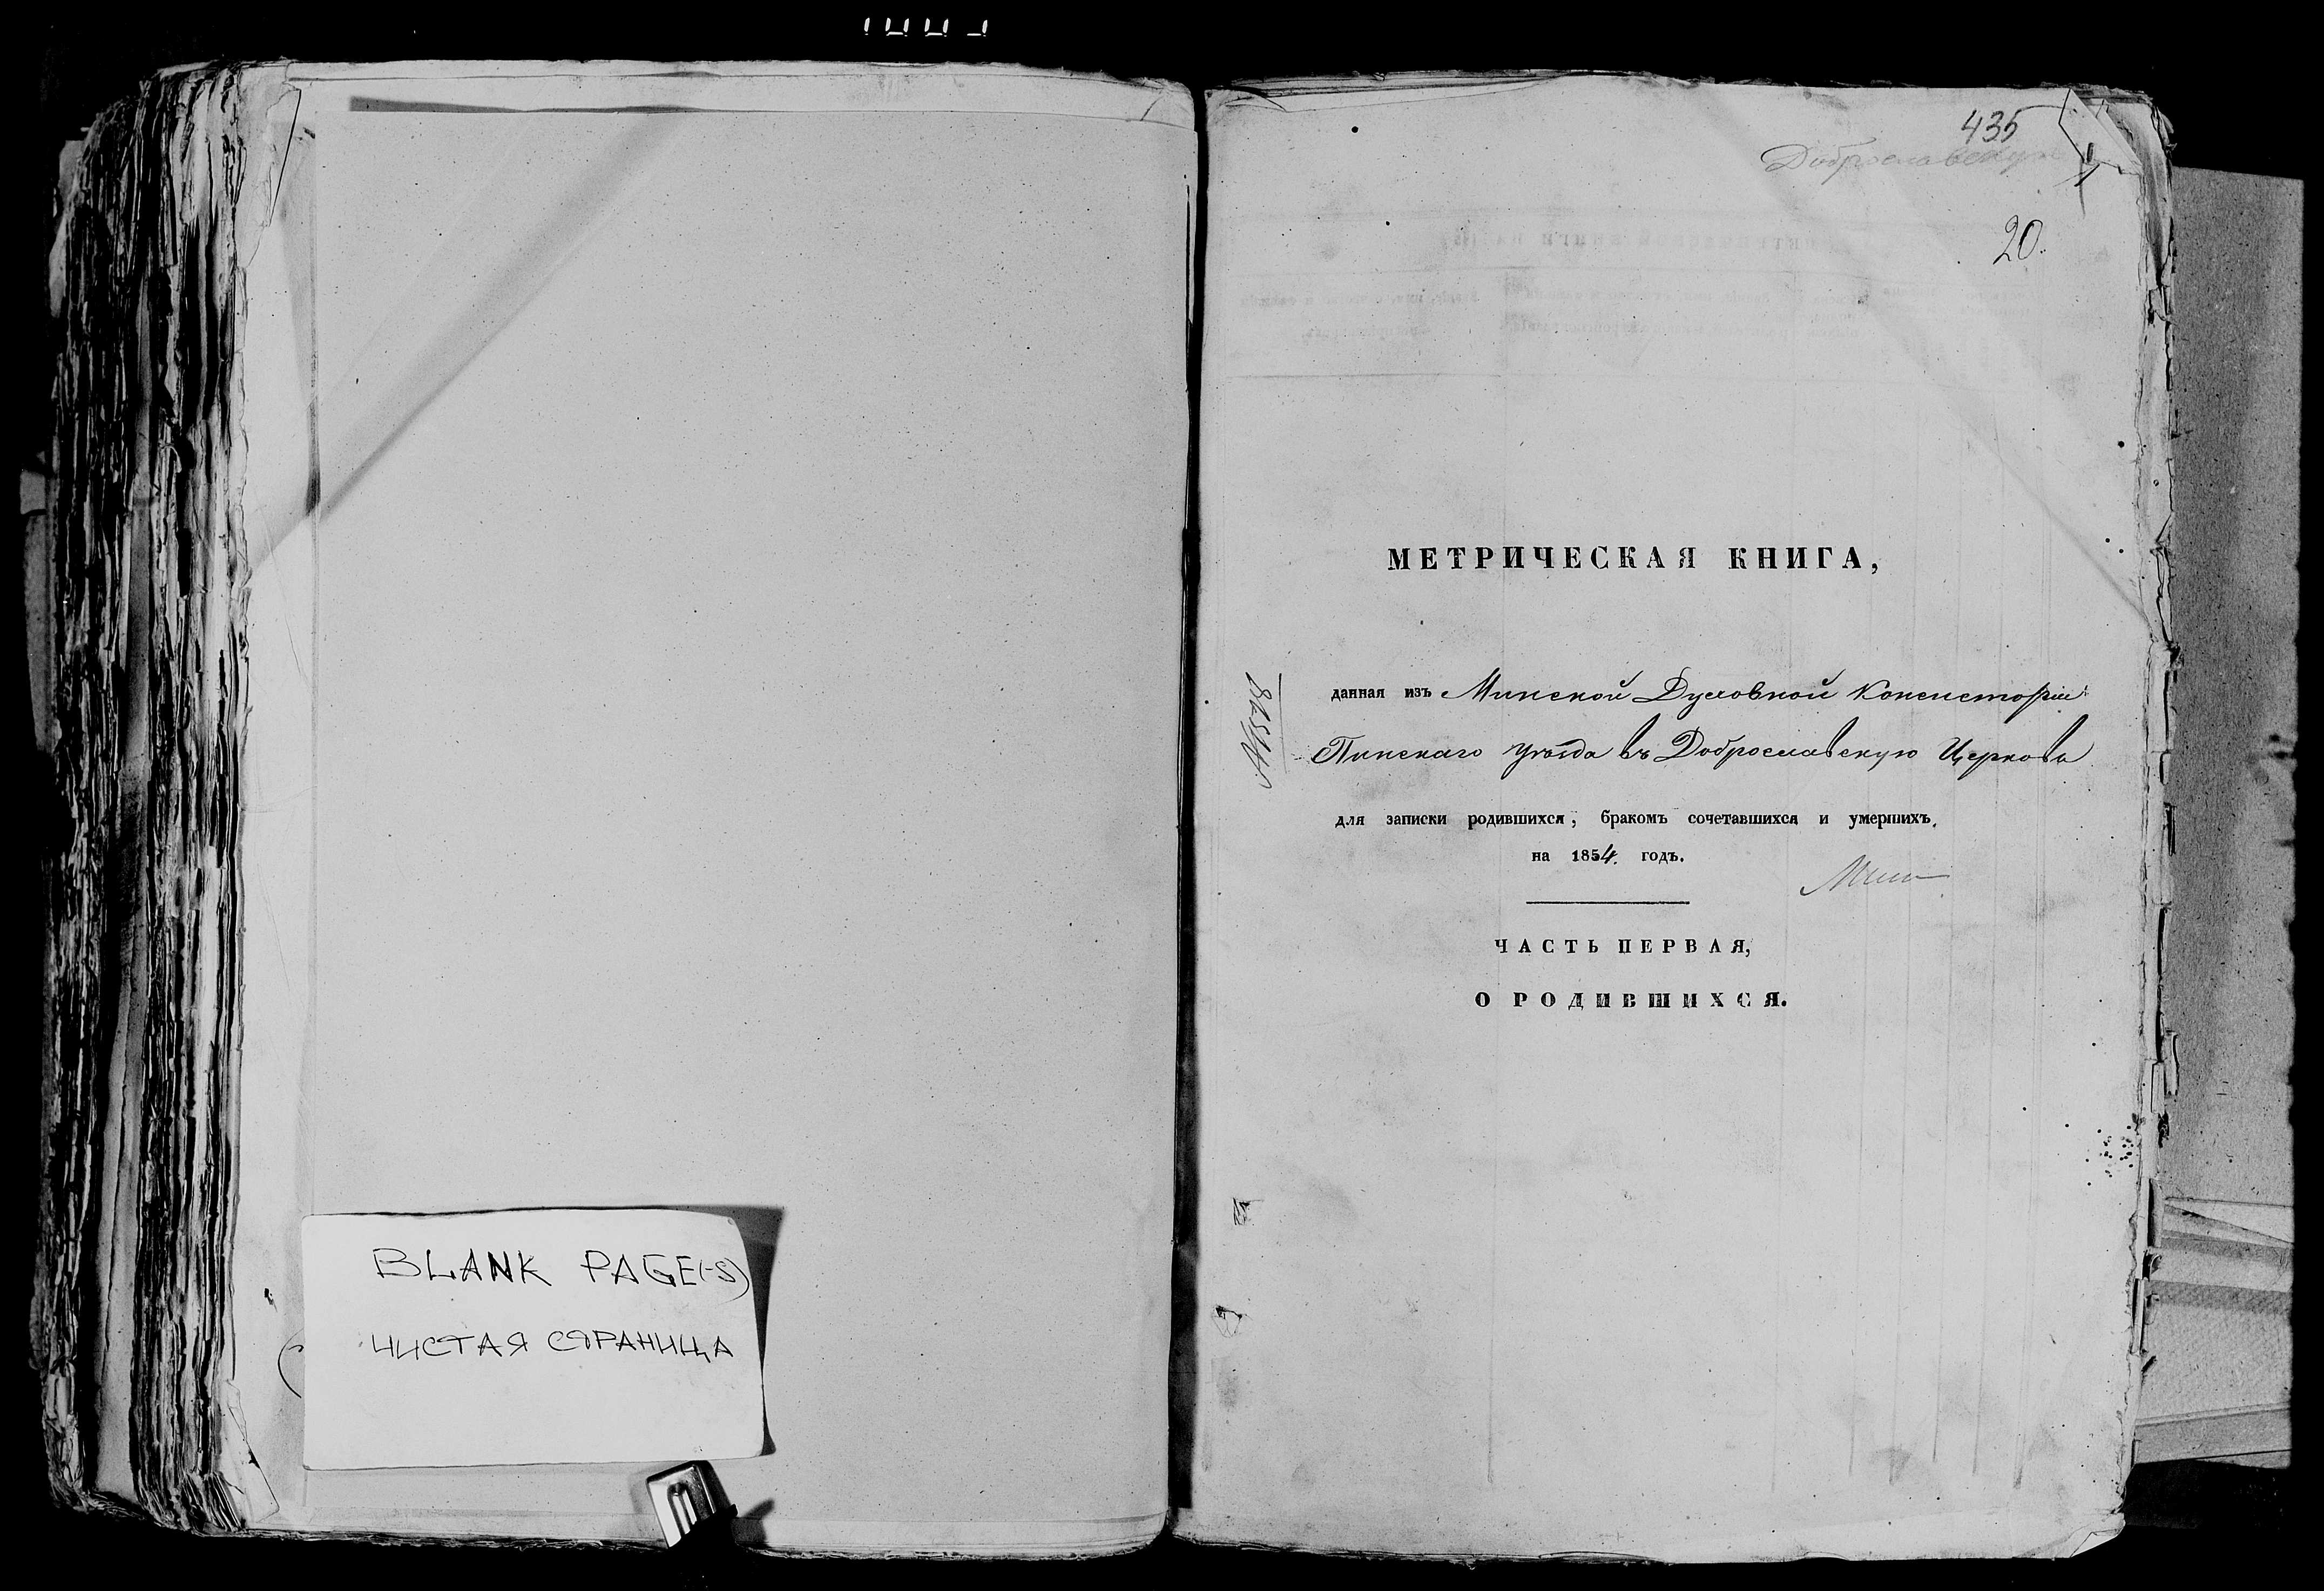 BLANK PAGE(-S)
ЧИСТАЯ СТРАНИЦА
435
Доброславскую
20.
МЕТРИЧЕСКАЯ КНИГА,
данная изъ Минской Духовной Консисторіи
Пинскаго уѣзда въ Доброславскую Церковь
для записки родившихся, бракомъ сочетавшихся и умершихъ.
на 1854. годъ.
ЧАСТЬ ПЕРВАЯ,
О РОДИВШИХСЯ.